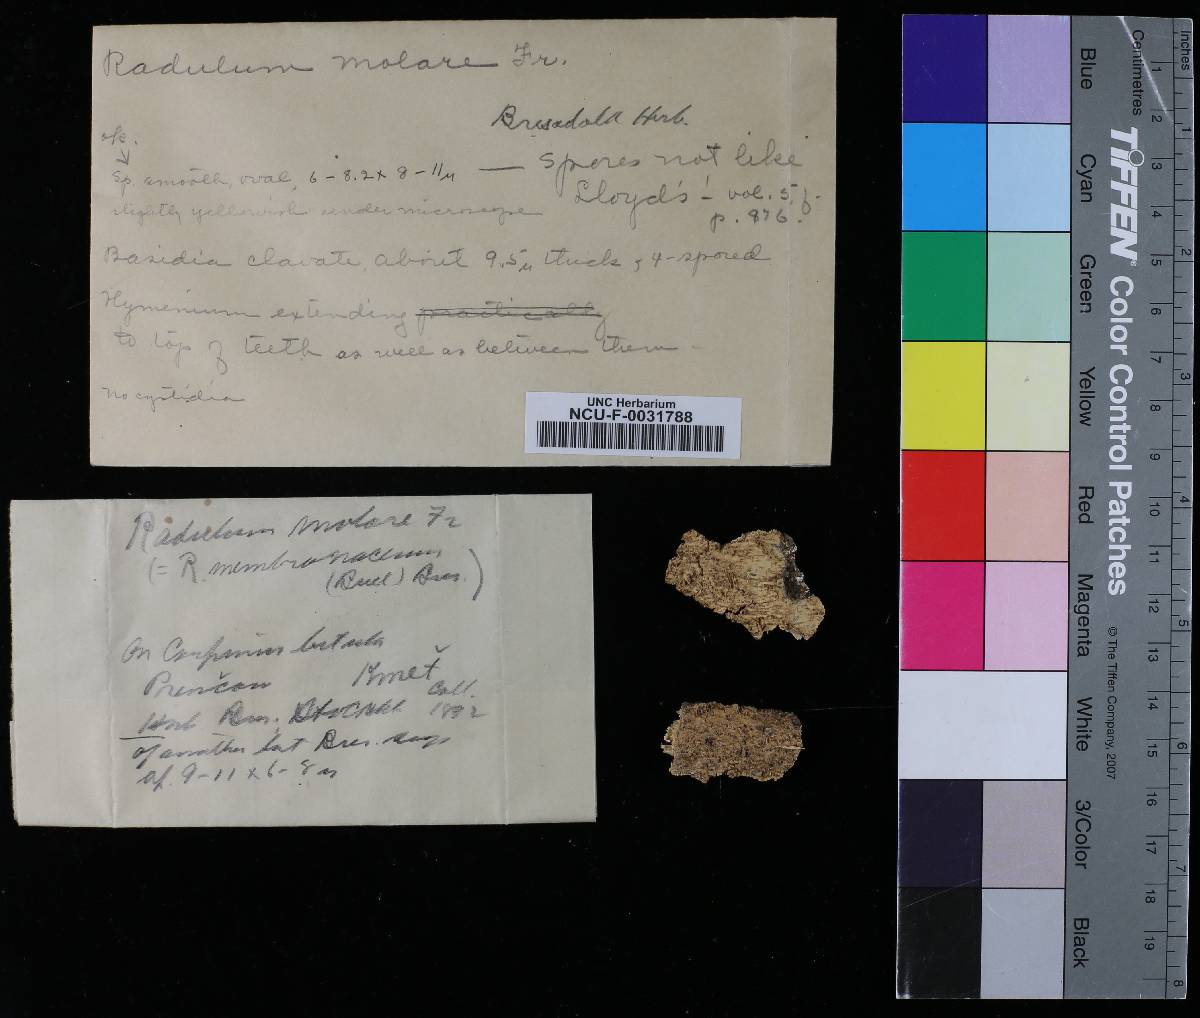 Radulum molare Fr.
Bresadola Herb.
ok.
Sp. smooth, oval, 6-8.2 x 8-11µ — Spores not like
slightly yellowish under microscope Lloyd's - vol. 5, f.
p. 876.
Basidia clavate, about 9.5µ thick, 4-spored
Hymenium extending practically
to top of teeth as well as between them -
no cystidia
UNC Herbarium
NCU-F-0031788
Radulum molare Fr
(= R. membranaceum
(Bull) Bres.)
On Carpinus betula
Prenčow Kmeť
Coll.
Herb Bres. Stockh 1892
of another lot Bres. says
sp. 9-11 x 6-8 µ
Blue
Cyan
Green
Yellow
Red
Magenta
White
3/Color
Black
TIFFEN® Color Control Patches
© The Tiffen Company, 2007
Centimetres
1 2 3 4 5 6 7 8 9 10 11 12 13 14 15 16 17 18 19
Inches
1 2 3 4 5 6 7 8